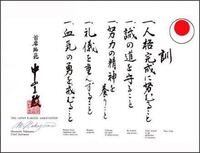 訓
一、人格完成に努むること
一、誠の道を守ること
一、努力の精神を養うこと
一、礼儀を重んずること
一、血気の勇を戒むること
首席師範
中山正敏
THE JAPAN KARATE ASSOCIATION
Masatoshi Nakayama
Chief Instructor